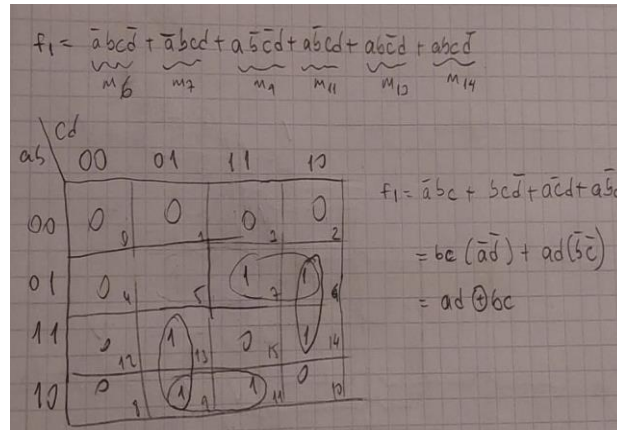 f₁ = a̅bcd̅ + a̅bcd + ab̅c̅d + ab̅cd + abc̅d + abcd̅
m6 m7 m9 m11 m13 m14
cd
ab 00 01 11 10
00 0 0 0 1 0 3 0 2
01 0 4 5 1 7 1 6
11 0 12 1 13 0 15 1 14
10 0 8 1 9 1 11 0 10
f₁ = a̅bc + bcd̅ + ac̅d + ab̅d
= bc (a̅d̅) + ad (b̅c̅)
= ad ⊕ bc